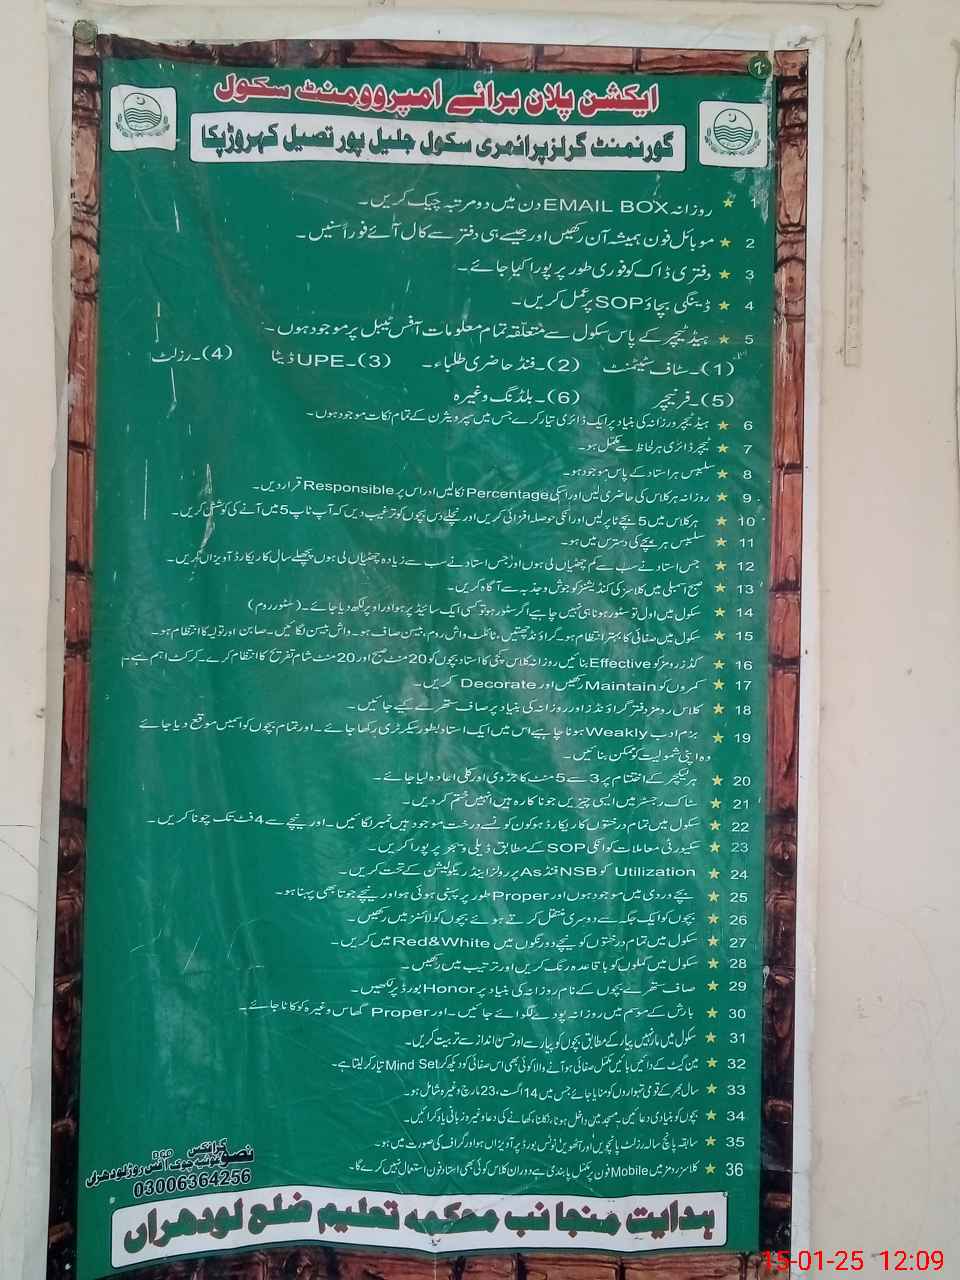 ایکشن پلان برائے امپروومنٹ سکول
گورنمنٹ گرلز پرائمری سکول جلیل پور تصیل کہروڑپکا
1 ★ روزانہ EMAIL BOX دن میں دو مرتبہ چیک کریں۔
2 ★ موبائل فون ہمیشہ آن رکھیں اور جیسے ہی دفتر سے کال آئے فوراً سنیں۔
3 ★ دفتری ڈاک کو فوری طور پر پورا کیا جائے۔
4 ★ ڈینگی بچاؤ SOP پر عمل کریں۔
5 ★ ہیڈ ٹیچر کے پاس سکول سے متعلقہ تمام معلومات آفس ٹیبل پر موجود ہوں۔
(1)۔سٹاف سٹیٹمنٹ (2)۔فنڈ حاضری طلباء۔ (3)۔UPE ڈیٹا (4)۔رزلٹ
(5)۔فرنیچر (6)۔بلڈنگ وغیرہ
6 ★ ہیڈ ٹیچر روزانہ کی بنیاد پر ایک ڈائری تیار کرے جس میں سپرویژن کے تمام نکات موجود ہوں۔
7 ★ ٹیچر ڈائری ہر لحاظ سے مکمل ہو۔
8 ★ سلیبس ہر استاد کے پاس موجود ہو۔
9 ★ روزانہ ہر کلاس کی حاضری لیں اور اسکی Percentage نکالیں اور اس پر Responsible قرار دیں۔
10 ★ ہر کلاس میں 5 بچے ٹاپر لیں اور انکی حوصلہ افزائی کریں اور نچلے دس بچوں کو ترغیب دیں کہ آپ ٹاپ 5 میں آنے کی کوشش کریں۔
11 ★ سلیبس ہر بچے کی دسترس میں ہو۔
12 ★ جس استاد نے سب سے کم چھٹیاں لی ہوں اور جس استاد نے سب سے زیادہ چھٹیاں لی ہوں پچھلے سال کا ریکارڈ آویزاں کریں۔
13 ★ صبح اسمبلی میں کلاسز کی کنڈیشنز کو جوش و جذبہ سے آگاہ کریں۔
14 ★ سکول میں اول تو سٹور ہونا ہی نہیں چاہیے اگر سٹور ہو تو کسی ایک سائیڈ پر ہو اور اوپر لکھ دیا جائے۔ (سٹور روم)
15 ★ سکول میں صفائی کا بہتر انتظام ہو۔ گراؤنڈ چھتیں، ٹائلٹ واش روم، بیسن صاف ہو۔ واش بیسن لگائیں۔ صابن اور تولیہ کا انتظام ہو۔
16 ★ کڈز رومز کو Effective بنائیں روزانہ کلاس کچی کا استاد بچوں کو 20 منٹ صبح اور 20 منٹ شام تفریح کا انتظام کرے۔ کرکٹ اہم ہے۔
17 ★ کمروں کو Maintain رکھیں اور Decorate کریں۔
18 ★ کلاس رومز دفتر گراؤنڈز اور روزانہ کی بنیاد پر صاف ستھرے کیے جائیں۔
19 ★ بزم ادب Weakly ہونا چاہیے اس میں ایک استاد بطور سیکرٹری رکھا جائے۔ اور تمام بچوں کو اسمیں موقع دیا جائے
وہ اپنی شمولیت کو ممکن بنائیں۔
20 ★ ہر لیکچر کے اختتام پر 3 سے 5 منٹ کا جزوی اور کلی اعادہ لیا جائے۔
21 ★ سٹاک رجسٹر میں ایسی چیزیں جو ناکارہ ہیں انہیں ختم کر دیں۔
22 ★ سکول میں تمام درختوں کا ریکارڈ ہو کون کونسے درخت موجود ہیں نمبر لگائیں۔ اور نیچے سے 4 فٹ تک چونا کریں۔
23 ★ سکیورٹی معاملات کو انکی SOP کے مطابق ڈیلی وہجر پر پورا کریں۔
24 ★ Utilization کو NSB فنڈ As پر رولز اینڈ ریگولیشن کے تحت کریں۔
25 ★ بچے وردی میں موجود ہوں اور Proper طور پر پہنی ہوئی ہو اور نیچے جوتا بھی پہنا ہو۔
26 ★ بچوں کو ایک جگہ سے دوسری منتقل کرتے ہوئے بچوں کو لائنز میں رکھیں۔
27 ★ سکول میں تمام درختوں کو نیچے دو رنگوں میں Red&White میں کریں۔
28 ★ سکول میں گملوں کو باقاعدہ رنگ کریں اور ترتیب میں رکھیں۔
29 ★ صاف ستھرے بچوں کے نام روزانہ کی بنیاد پر Honor بورڈ پر لکھیں۔
30 ★ بارش کے موسم میں روزانہ پودے لگوائے جائیں۔ اور Proper گھاس وغیرہ کو کاٹا جائے۔
31 ★ سکول میں مار نہیں پیار کے مطابق بچوں کو پیار سے اور حسن انداز سے تربیت کریں۔
32 ★ مین گیٹ کے دائیں بائیں مکمل صفائی ہو آنے والا کوئی بھی اس صفائی کو دیکھ کر Mind Set تیار کر لیتا ہے۔
33 ★ سال بھر کے قومی تہواروں کو منایا جائے جس میں 14 اگست، 23 مارچ وغیرہ شامل ہو۔
34 ★ بچوں کو بنیادی دعائیں، مسجد میں داخل ہونا، نکلنا، کھانے کی دعا وغیرہ زبانی یاد کرائیں۔
35 ★ سابقہ پانچ سالہ رزلٹ پانچویں اور آٹھویں نوٹس بورڈ پر آویزاں ہو اور گراف کی صورت میں ہو۔
36 ★ کلاسز رومز میں Mobile فون پر مکمل پابندی ہے دوران کلاس کوئی بھی استاد فون استعمال نہیں کرے گا۔
گرافکس
03006364256
ہدایت منجانب محکمہ تعلیم ضلع لودھراں
15-01-25 12:09